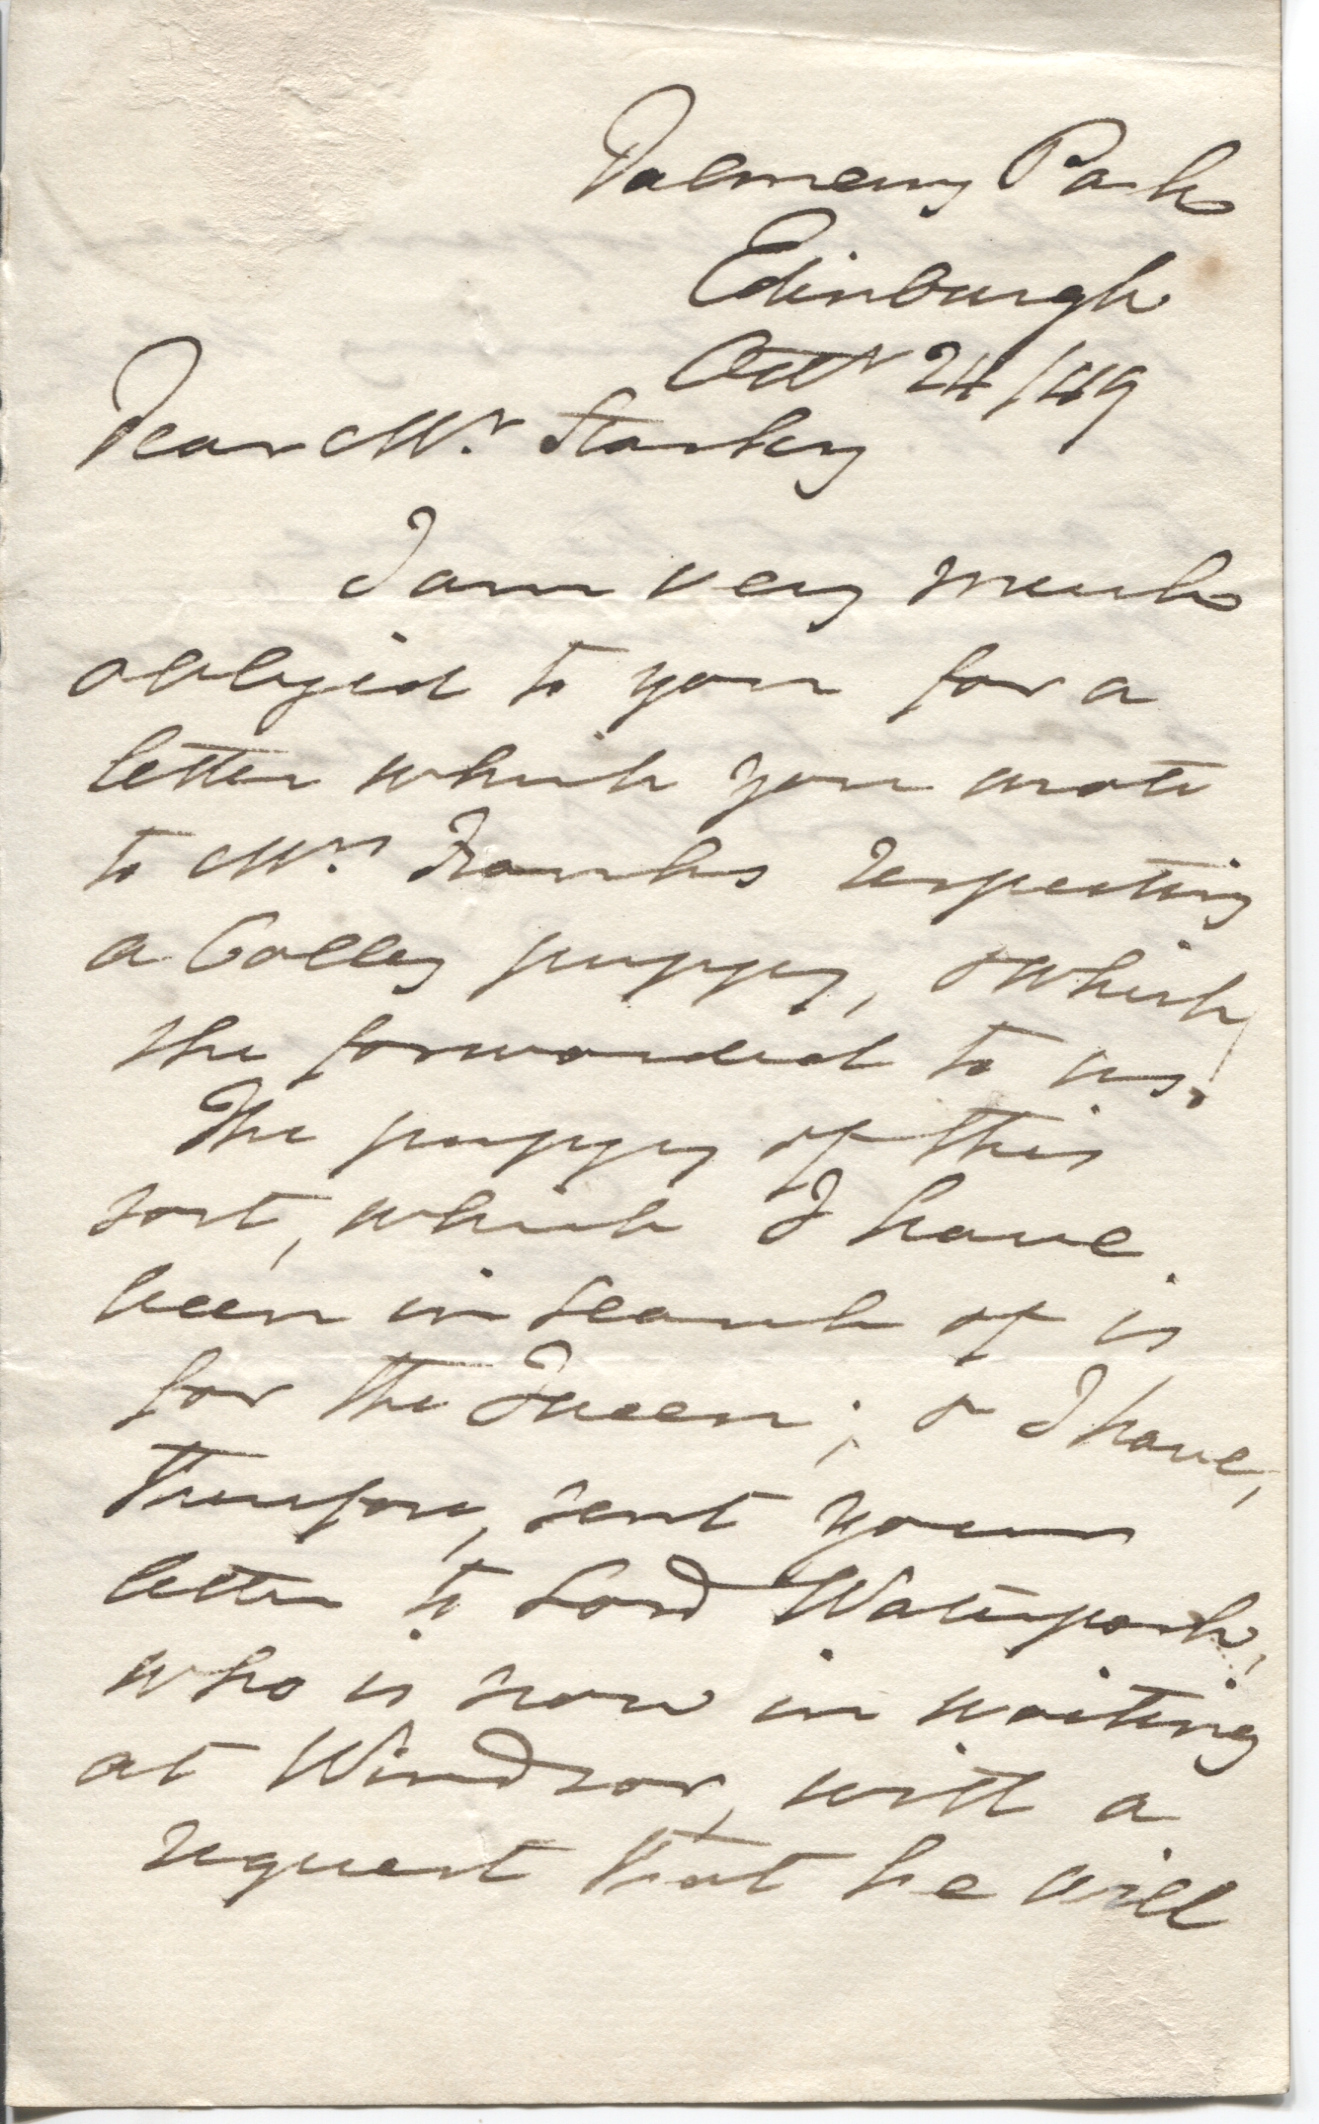 Dalmeny Park
Edinburgh
Octr 24/49
Dear Mr. Starkey
I am very much
obliged to you for a
letter which you wrote
to Mrs. Franks respecting
a Colley puppy, & which
she forwarded to us.
The puppy of this
sort, which I have
been in search of is
for the Queen; & I have,
therefore, sent your
letter to Lord Waterpark,
who is now in waiting
at Windsor, with a
request that he will